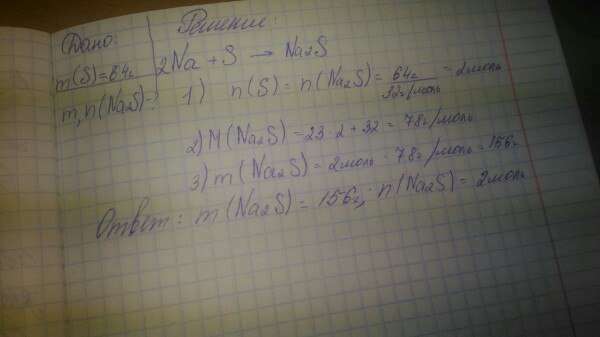 Дано: Решение:
m(S)=64г 2Na + S → Na2S
m, n(Na2S)-? 1) n(S) = n(Na2S) = 64г / 32г/моль = 2моль
2) M(Na2S) = 23·2+32 = 78г/моль
3) m(Na2S) = 2моль · 78г/моль = 156г
Ответ: m(Na2S) = 156г, n(Na2S) = 2моль